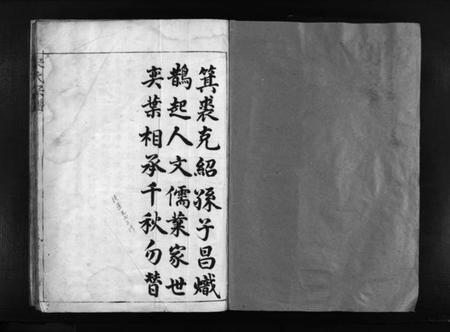 箕裘克紹孫子昌熾
鵲起人文儒業家世
奕葉相承千秋勿替